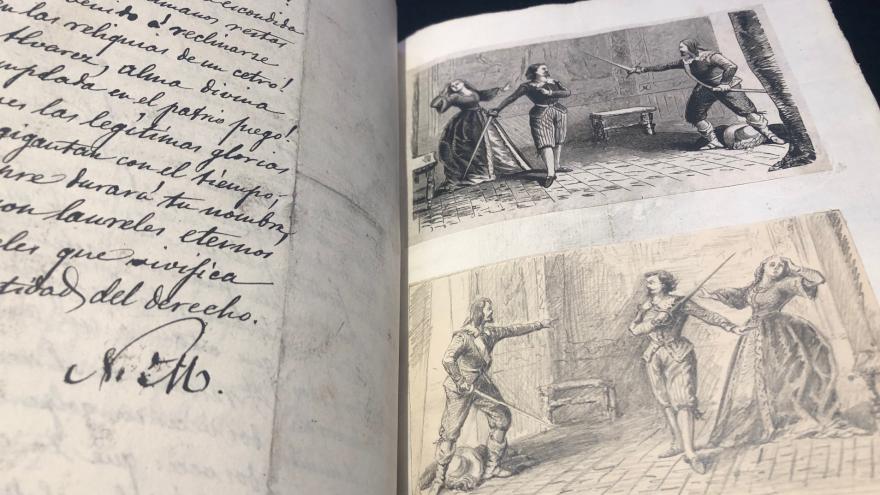 escondida
humanos restos
á reclinarse
en las reliquias de un cetro!
Alvarez, alma divina
templada en el patrio fuego!
las legítimas glorias
gigantan con el tiempo;
durará tu nombre,
con laureles eternos
que vivifica
del derecho.
N. M.